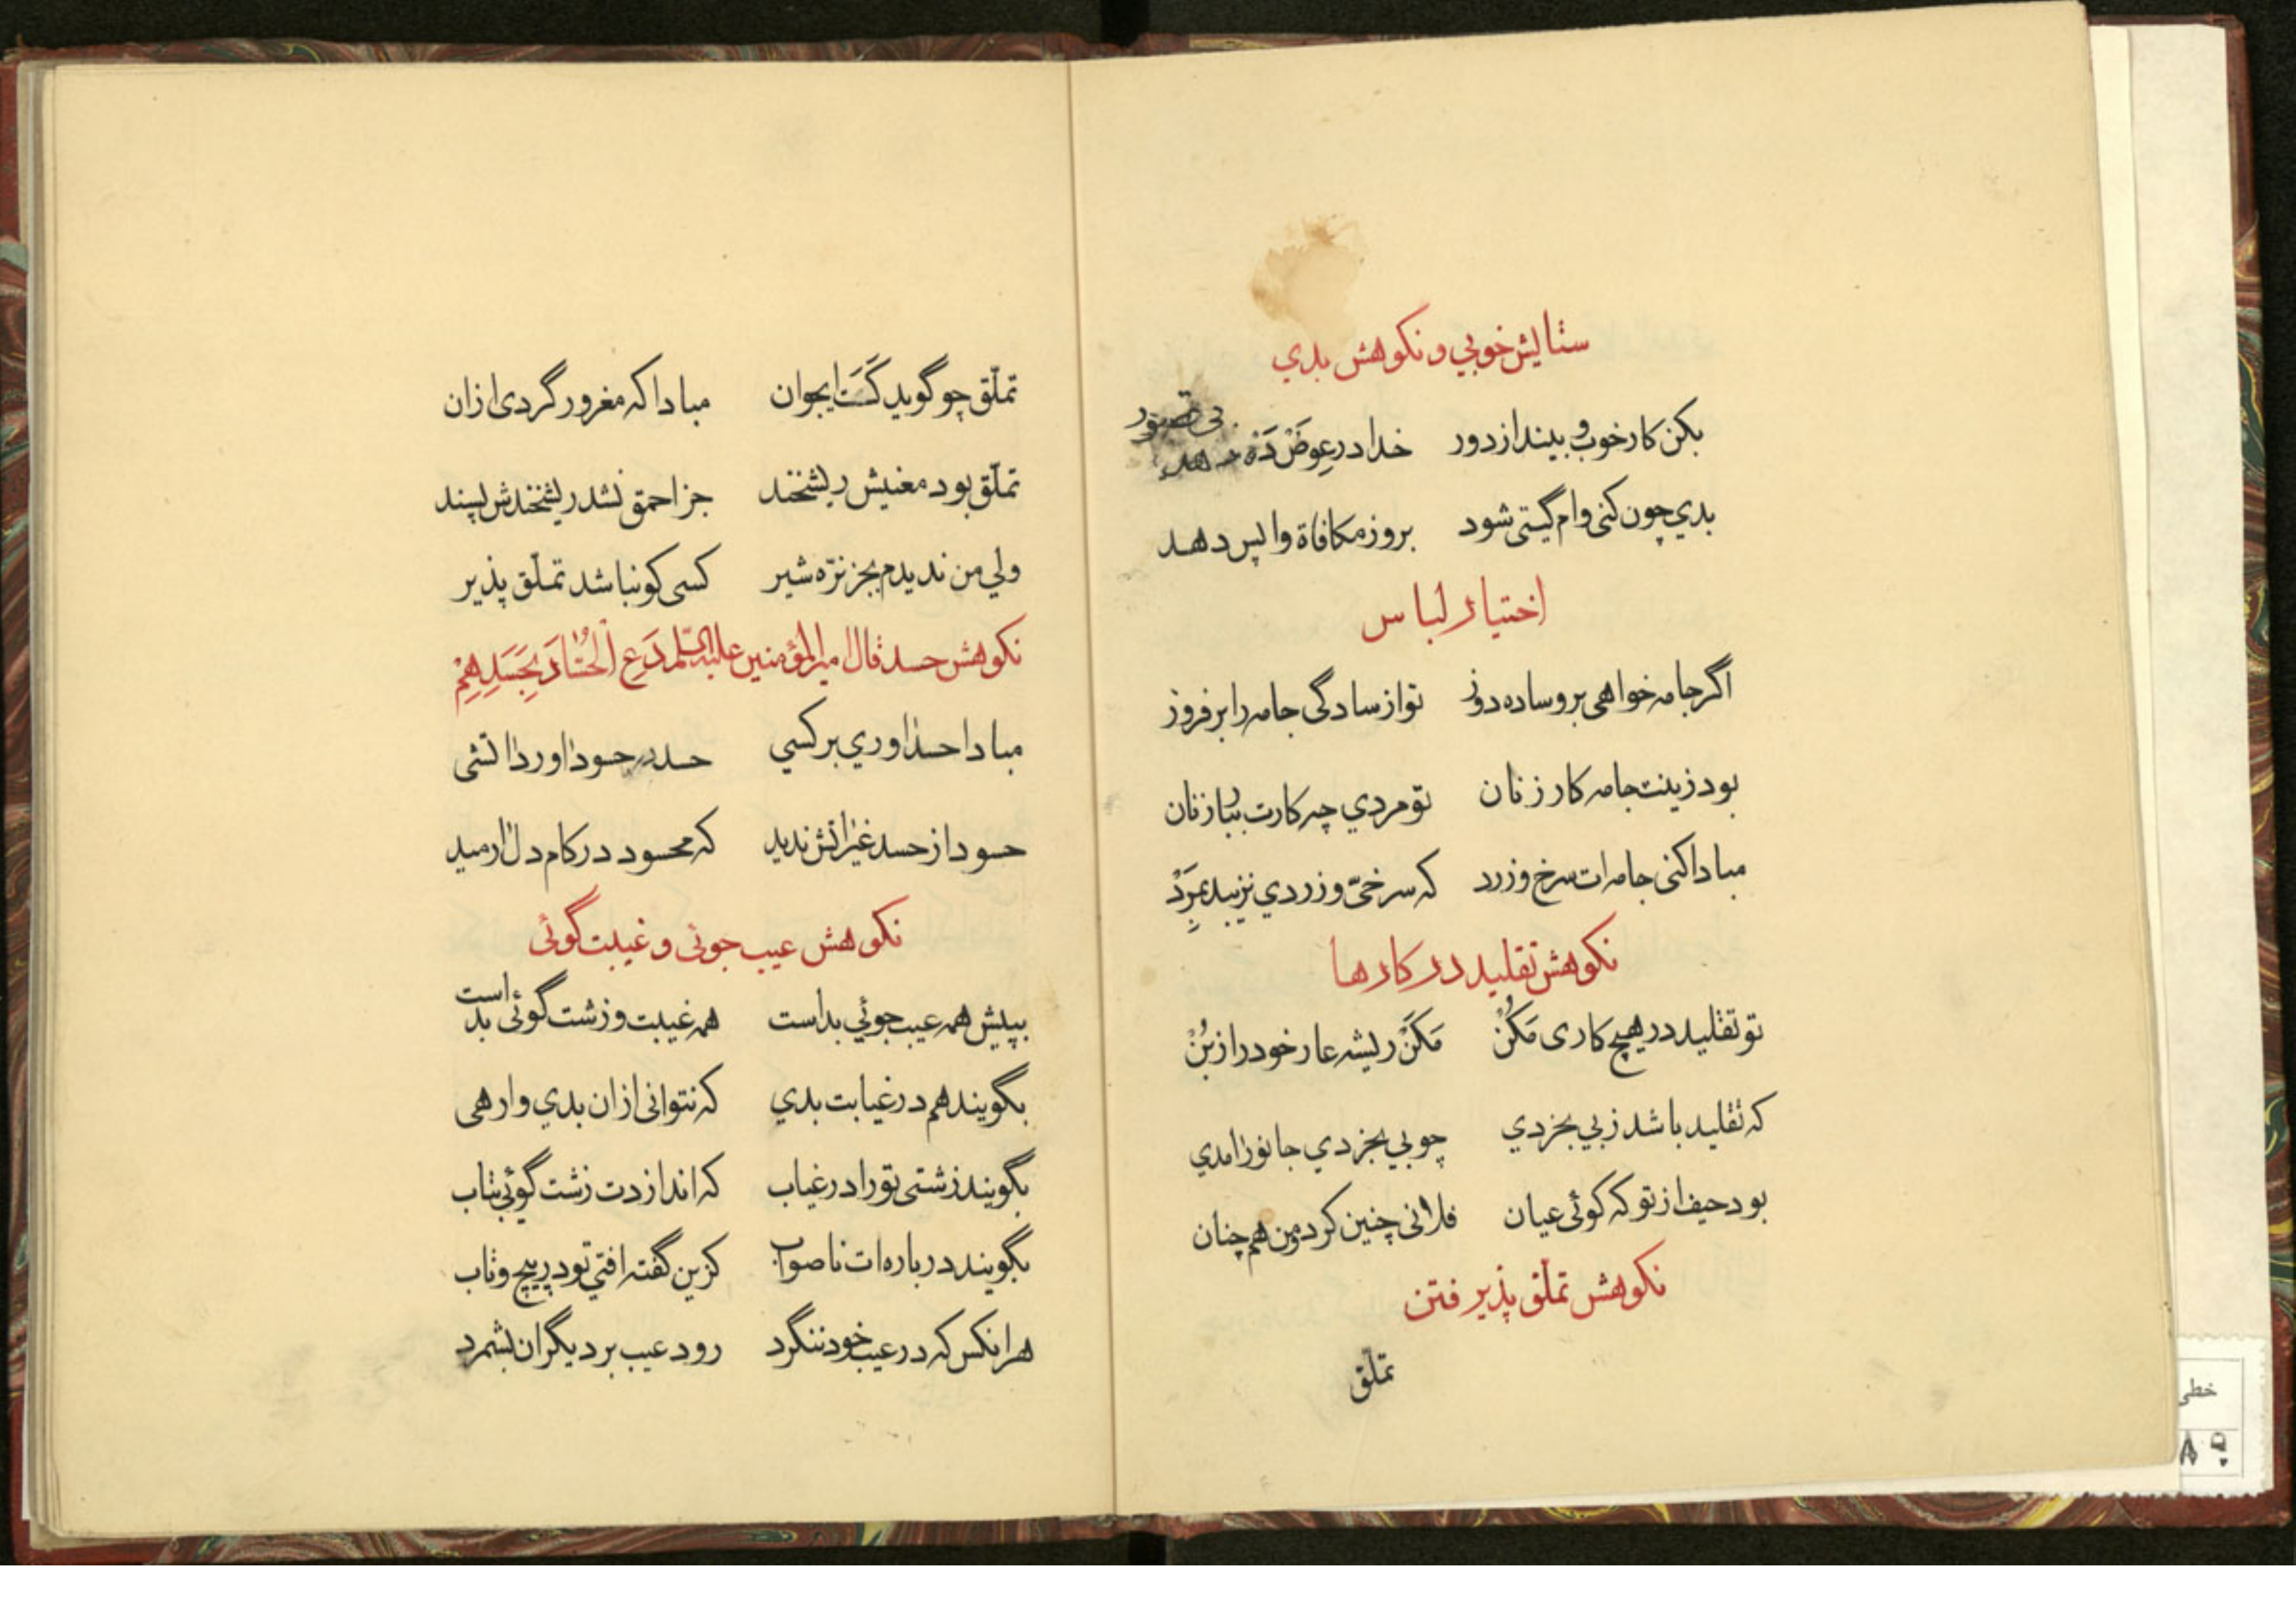 ستایش خوبي و نکوهش بدي
بکن کار خوب و بینداز دور خدا در عِوَضْ دَه دهد بی قصور
بدي چون کنی وام گیتی شود بروز مکافاة واپس دهد
اختیار لباس
اگر جامه خواهی برو ساده دوز تو از سادگی جامه را برفروز
بود زینت جامه کار زنان تو مردي چه کارت ببار زنان
مبادا کنی جامه‌ات سرخ و زرد که سرخیّ و زردي نزیبد بِمَرَدْ
نکوهش تقلید در کارها
تو تقلید در هیچ کاری مَکُنْ مَکَنْ ریشه عار خود را ز بُنْ
که تقلید باشد ز بي بخردي چو بي بخردي جانور امدي
بود حیف از تو که گوئی عیان فلانی چنین کرد و من هم چنان
نکوهش تملّق پذیرفتن
تملّق
تملّق چو گوید کَسَت ایجوان مبادا که مغرور گردی ازان
تملّق بود معنیش ریشخند جز احمق نشد ریشخندش پسند
ولي من ندیدم بجز نرّه شیر کسی کو نباشد تملّق پذیر
نکوهش حسد قال امیر المؤمنین علیه السّلم دَعِ الْحُسّادَ بِحَسَدِهِمْ
مبادا حسد اوري بر کسي حسد در حسود اورد اتشی
حسود از حسد غیر اتش ندید که محسود در کام دل ارمید
نکوهش عیب جوئی و غیبت گوئی
بپیش همه عیب جوئي بد است همه غیبت و زشت گوئی بد است
بگویند هم در غیابت بدي که نتوانی از ان بدي وارهی
بگویند زشتی تو را در غیاب که اندازدت زشت گوئی بتاب
بگویند درباره‌ات ناصواب کزین گفته افتي تو در پیچ و تاب
هر انکس که در عیب خود ننگرد رود عیب بر دیگران بشمرد
خطی